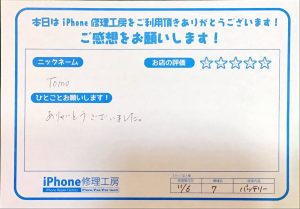 本日は iPhone 修理工房をご利用頂きありがとうございます!
ご感想をお願いします!
ニックネーム
お店の評価 ☆☆☆☆☆
Tomo
ひとことお願いします!
ありがとうございました。
iPhone修理工房
11/6 7 バッテリー